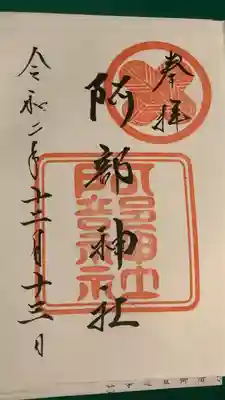 奉拝
阿部神社
阿部神社
令和二年十二月十三日